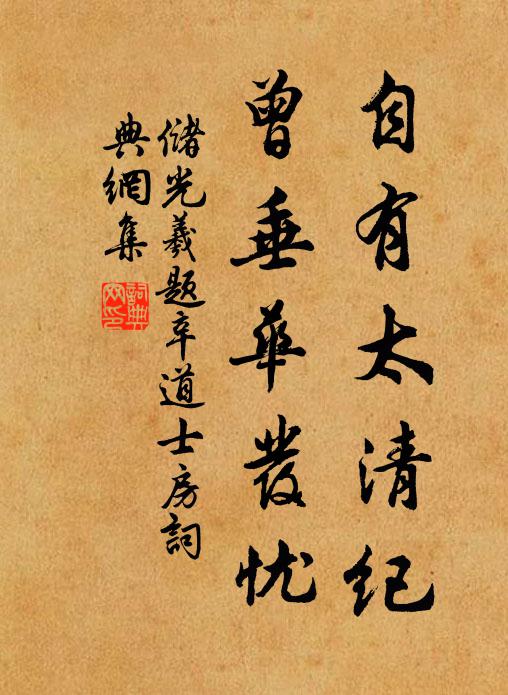 自有太清纪
曾垂華發忧
儲光羲题辛道士房詞
典網集
詞典網印